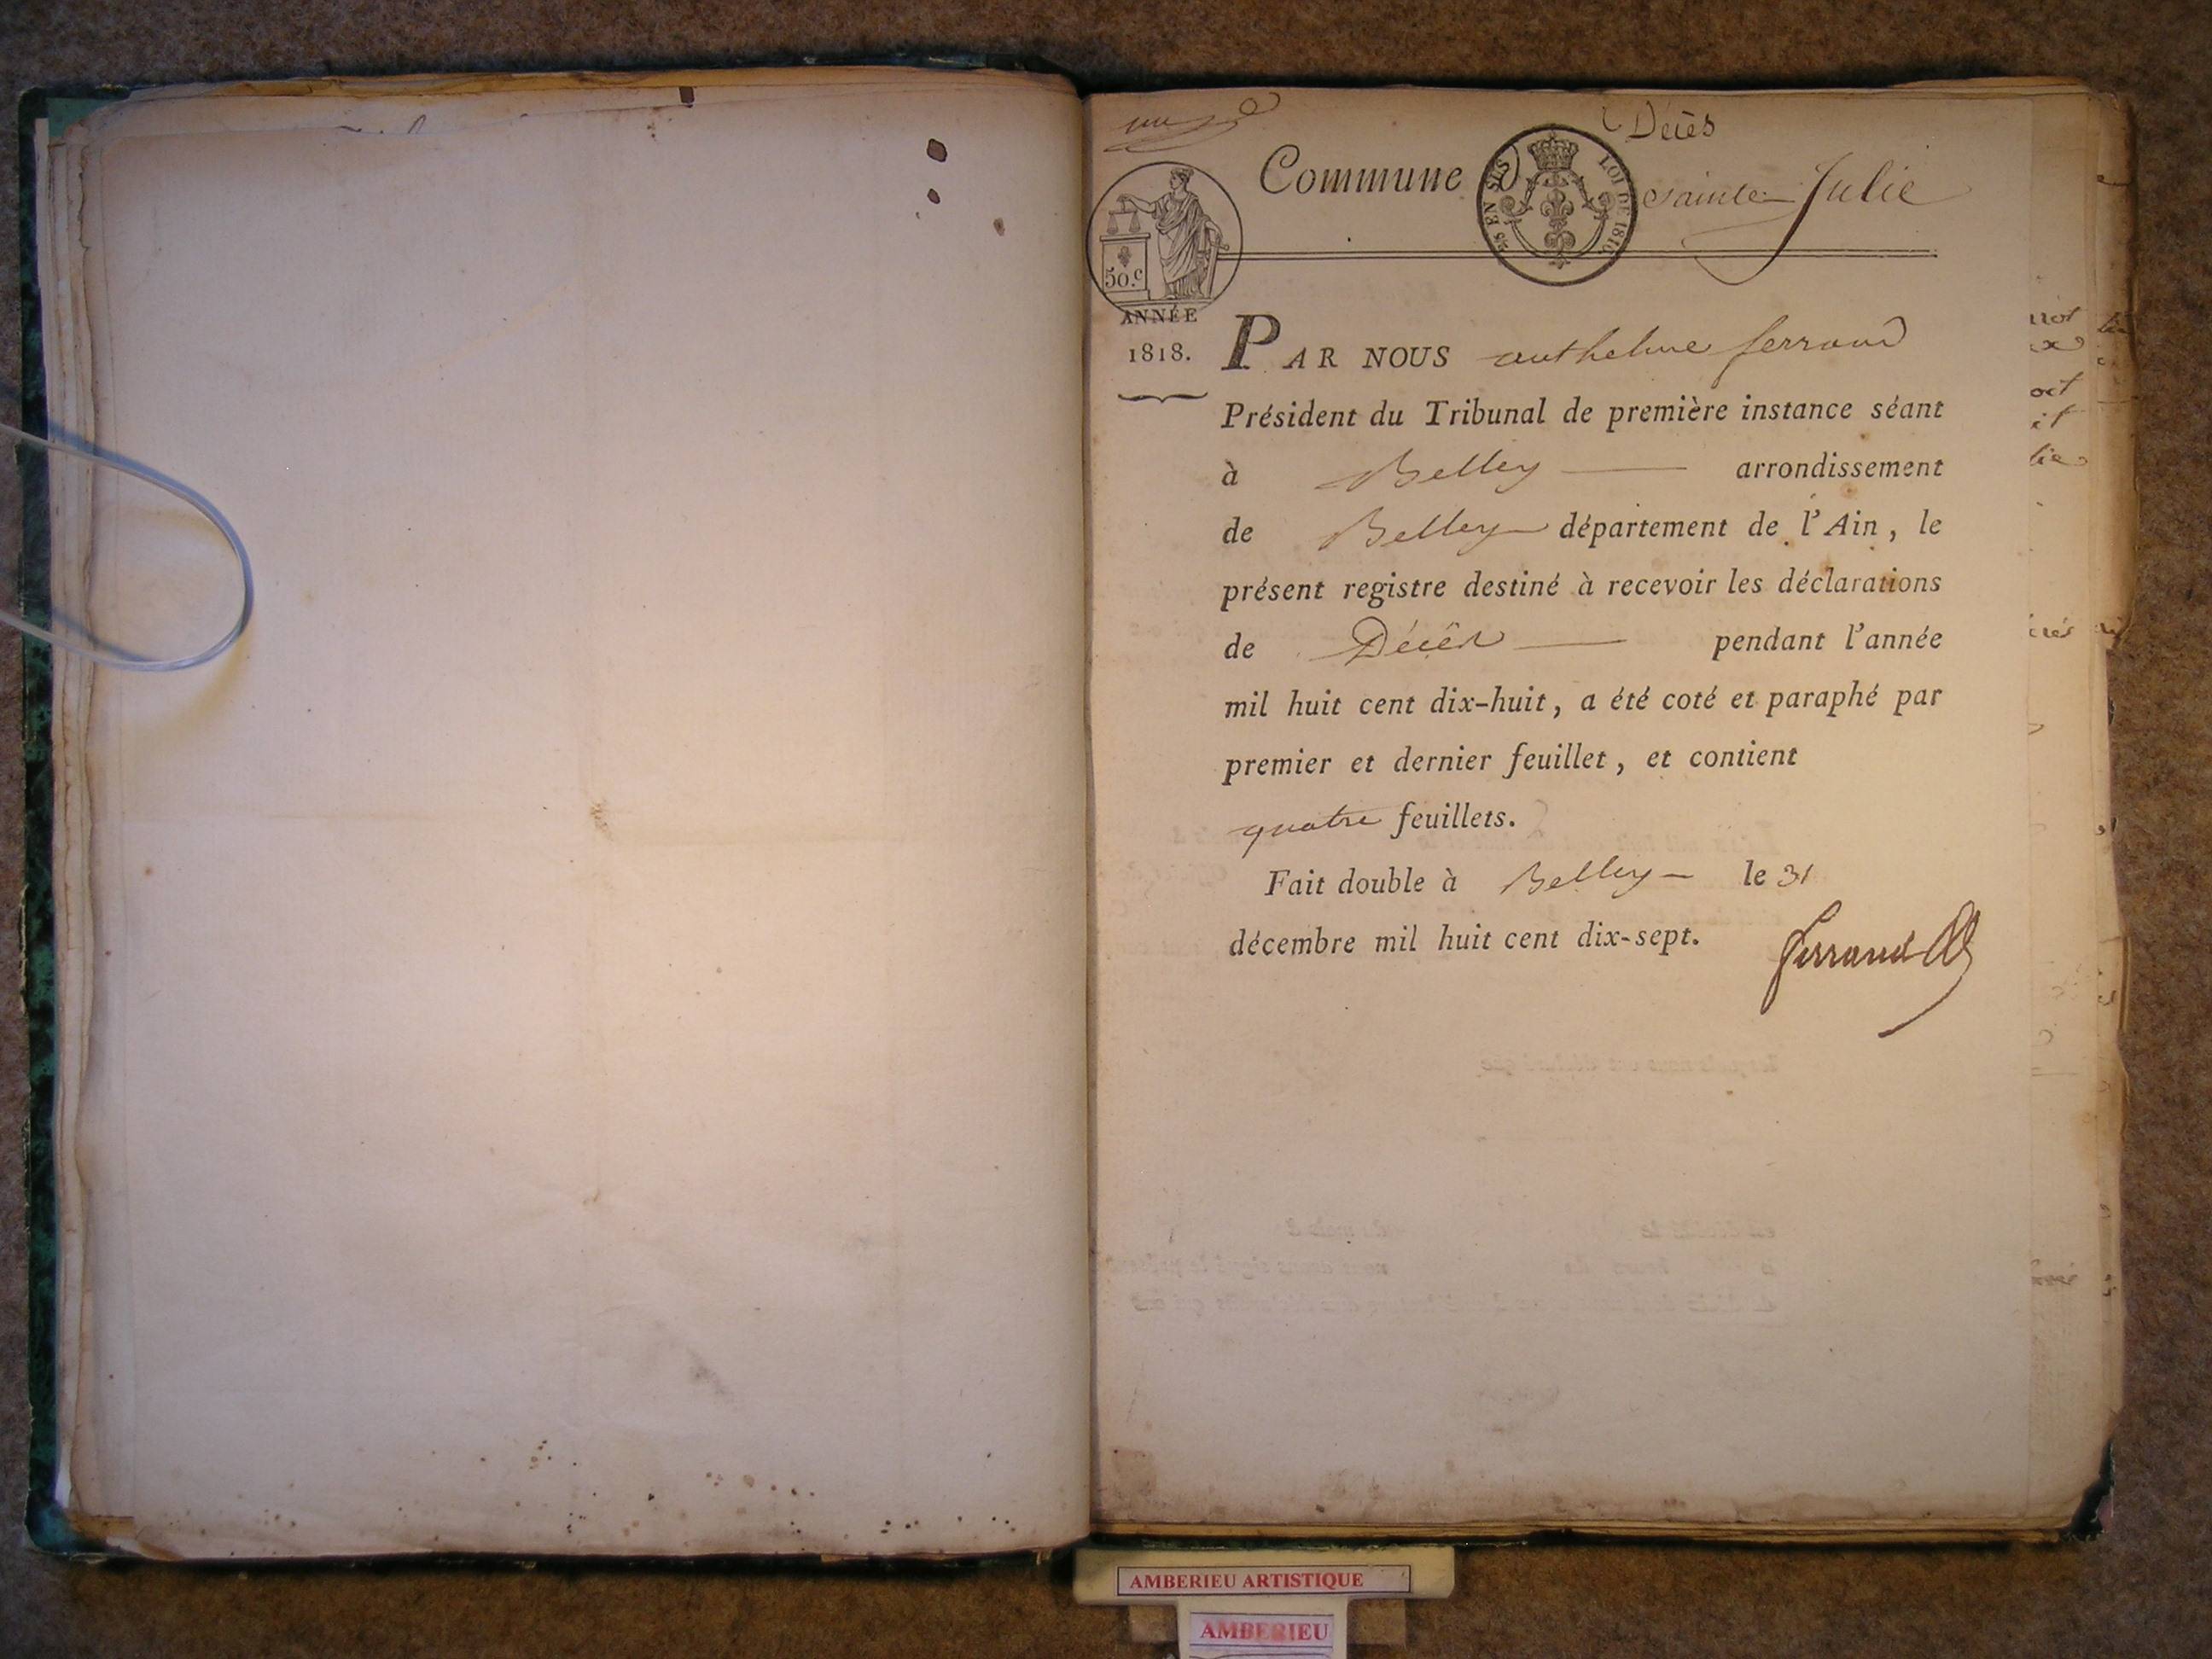 Décès
Commune D Sainte Julie
EN SUS
LOI DE 1816
50.c
ANNÉE
1818.
PAR NOUS anthelme ferrand
Président du Tribunal de première instance séant
à Belley arrondissement
de Belley département de l'Ain, le
présent registre destiné à recevoir les déclarations
de Décès pendant l'année
mil huit cent dix-huit, a été coté et paraphé par
premier et dernier feuillet, et contient
quatre feuillets.
Fait double à Belley le 31
décembre mil huit cent dix-sept.
ferrand
AMBERIEU ARTISTIQUE
AMBERIEU